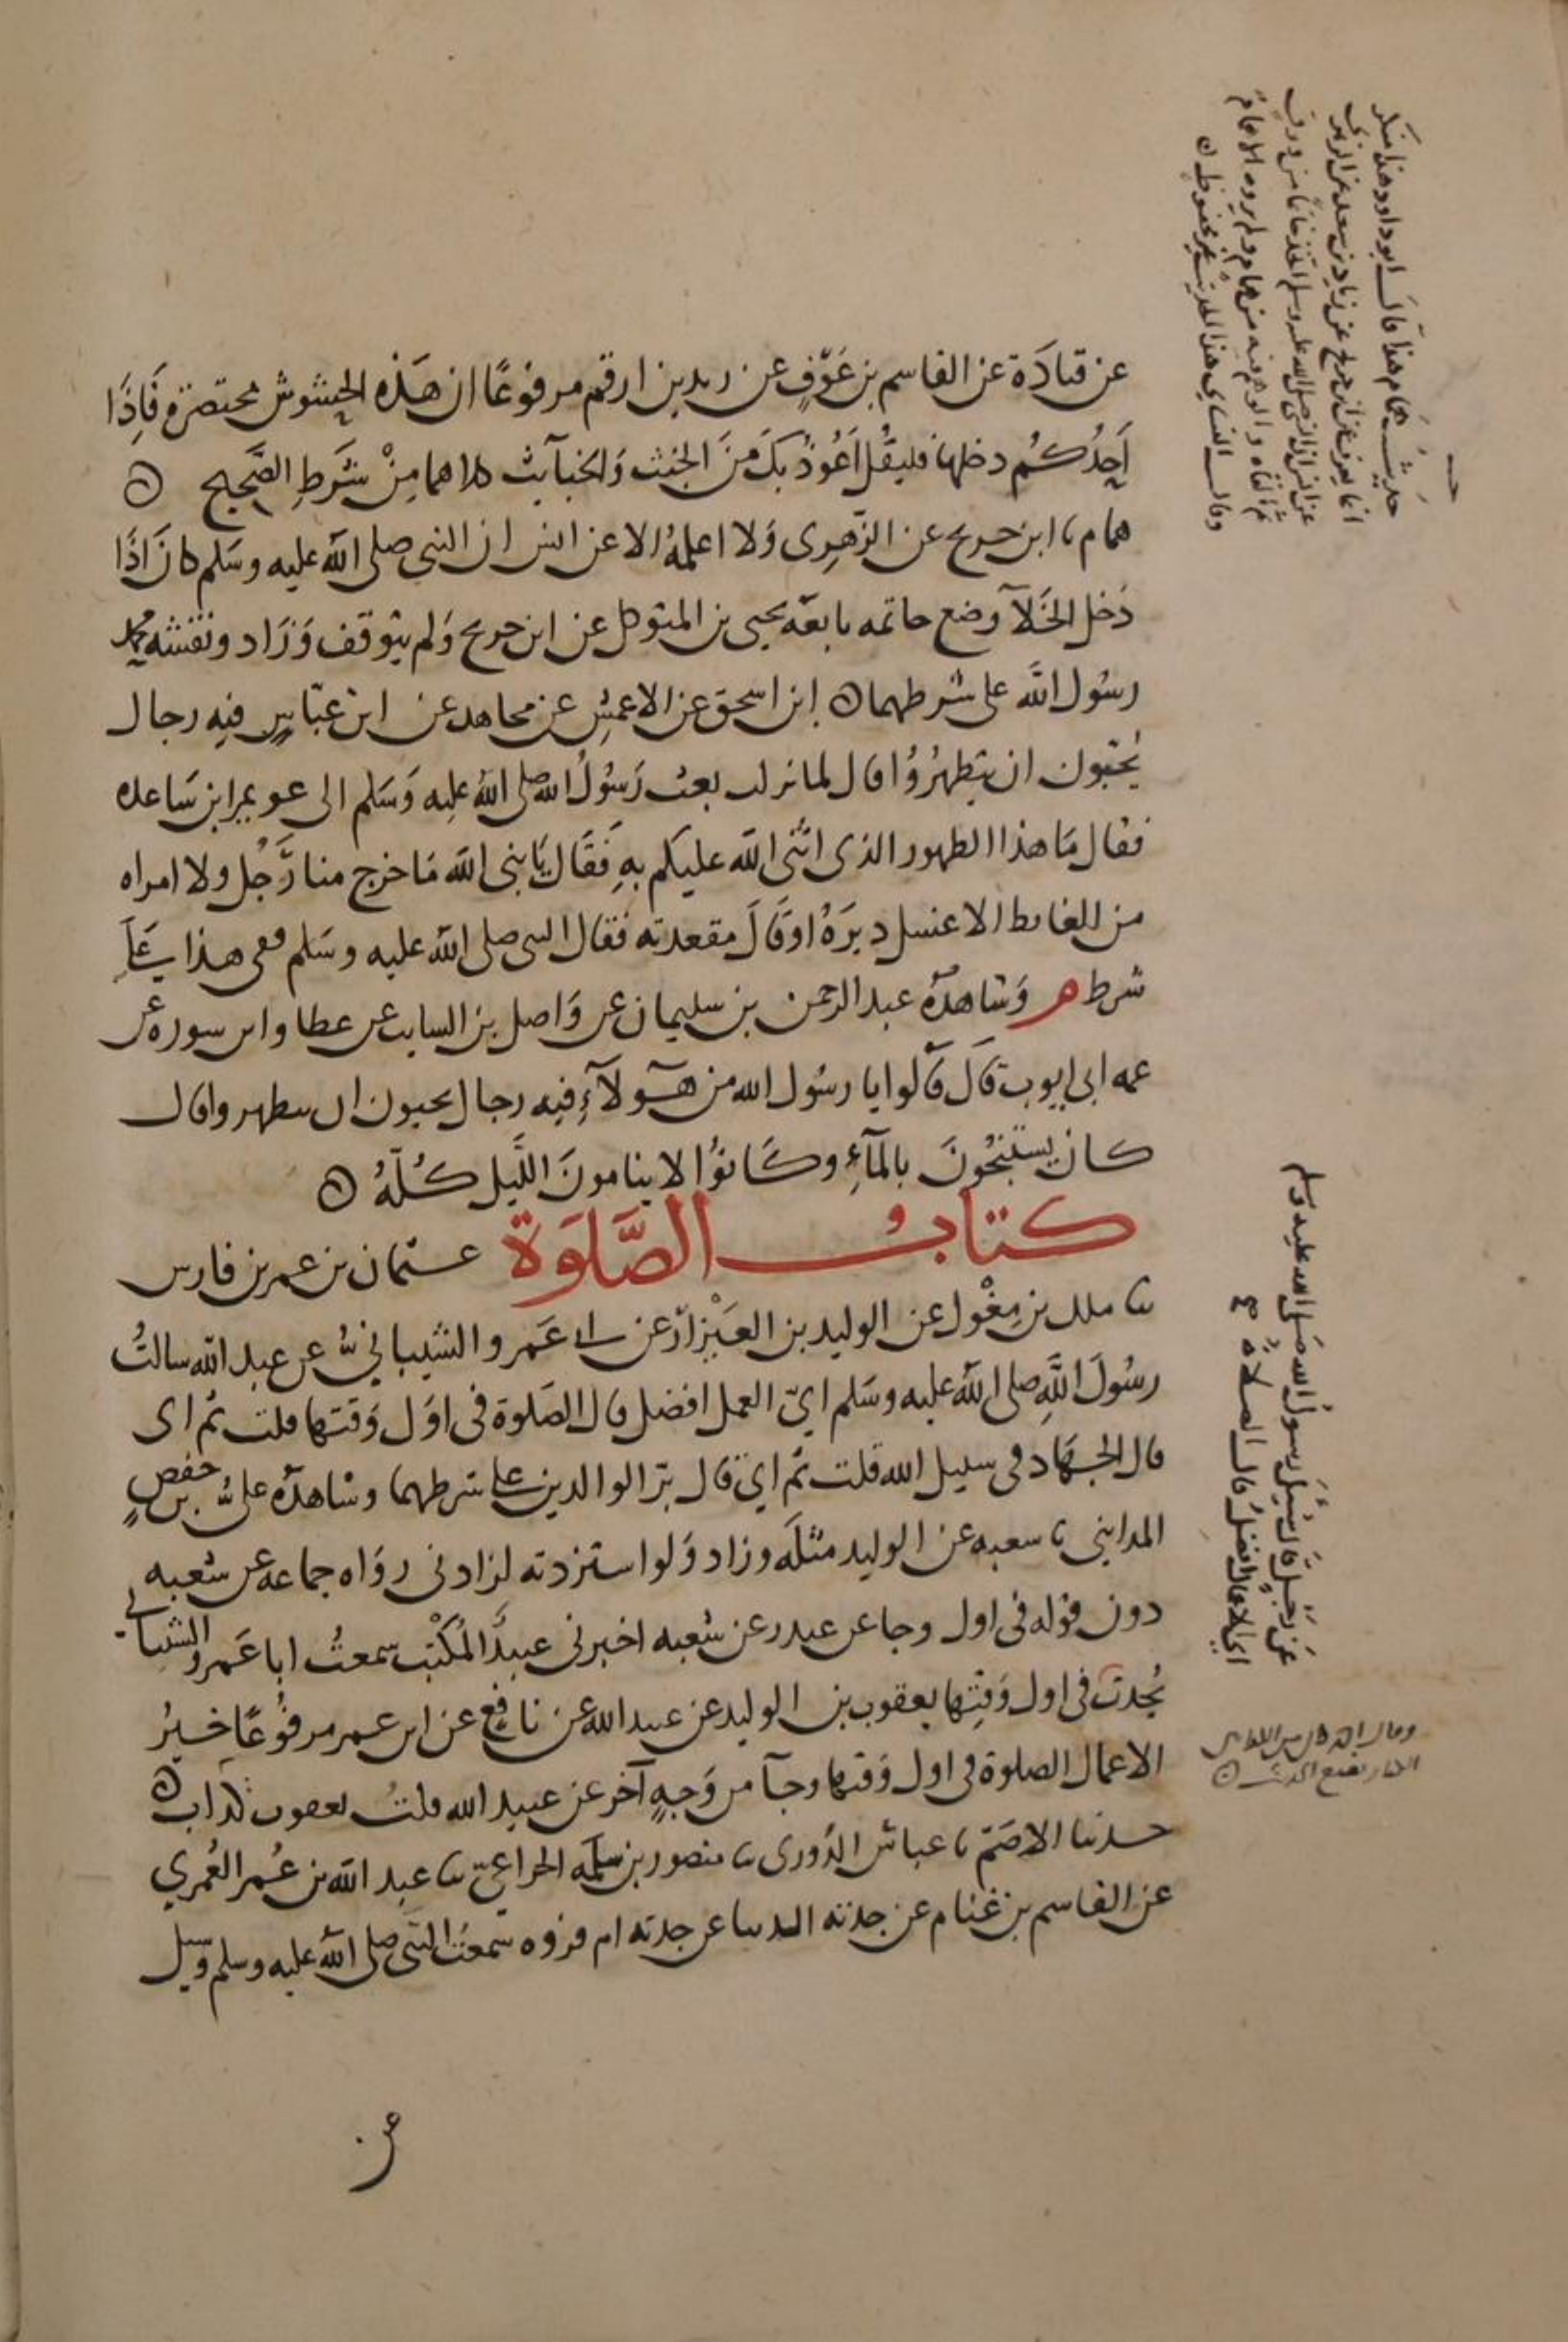 عن قتادة عن القاسم بن عوف عن زيد بن ارقم مرفوعا ان هذه الحشوش محتضرة فاذا
احدكم دخلها فليقل اعوذ بك من الخبث والخبآيث كلاهما من شرط الصحيح ه
همام نا ابن جريج عن الزهرى ولا اعلمه الا عن انس ان النبى صلى الله عليه وسلم كان اذا
دخل الخلآ وضع خاتمه تابعه يحيى بن المتوكل عن ابن جريج ولم يتوقف وزاد ونقشه محمد
رسول الله على شرطهما ه ابن اسحق عن الاعمش عن مجاهد عن ابن عباس فيه رجال
يحبون ان يتطهروا قال لما نزلت بعث رسول الله صلى الله عليه وسلم الى عويمر ابن ساعده
فقال ما هذا الطهور الذى اثنى الله عليكم به فقال يا نبى الله ما خرج منا رجل ولا امراه
من الغايط الا غسل دبره او قال مقعدته فقال النبى صلى الله عليه وسلم ففى هذا على
شرط م وشاهده عبد الرحمن بن سليمان عن واصل بن السايب عن عطا وابن سوره عن
عمه ابى ايوب قال قالوا يا رسول الله من هآولآء فيه رجال يحبون ان يتطهروا قال
كان يستنجون بالمآء وكانوا لا ينامون الليل كله ه
كتاب الصلوة عثمان بن عمر بن فارس
نا ملك بن مغول عن الوليد بن العيزار عن ابى عمرو الشيبانى عن عبد الله سالت
رسول الله صلى الله عليه وسلم اى العمل افضل قال الصلوة فى اول وقتها قلت ثم اى
قال الجهاد فى سبيل الله قلت ثم اى قال بر الوالدين على شرطهما وشاهده على بن حفص
المداينى نا شعبه عن الوليد مثله وزاد ولو استزدته لزادنى رواه جماعه عن شعبه
دون قوله فى اول وجا عن غندر عن شعبه اخبرنى عبيد المكتب سمعت ابا عمرو الشيبانى
يحدث فى اول وقتها يعقوب بن الوليد عن عبيد الله عن نافع عن ابن عمر مرفوعا خير
الاعمال الصلوة فى اول وقتها وجآ من وجه آخر عن عبيد الله قلت يعقوب كذاب ه
حدثنا الاصم نا عباس الدورى نا منصور بن سلمه الخزاعى نا عبد الله بن عمر العمري
عن القاسم بن غنام عن جدته الدنيا عن جدته ام فروه سمعت النبى صلى الله عليه وسلم وسيل
حديث همام هذا قال ابو داود هذا منكر
انما يعرف عن ابن جريج عن زياد بن سعد عن الزهرى
عن انس ان النبى صلى الله عليه وسلم اتخذ خاتما من ورق
ثم القاه والوهم فيه من همام ولم يروه الا همام
وقال النساى هذا الحديث غير محفوظ ه
عن رجل قال سيل رسول الله صلى الله عليه وسلم
اي الاعمال افضل قال الصلاة